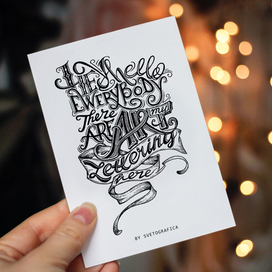 Hello
EWERYBODY
There my
ARE ART
Lettering
here
BY SVETOGRAFICA